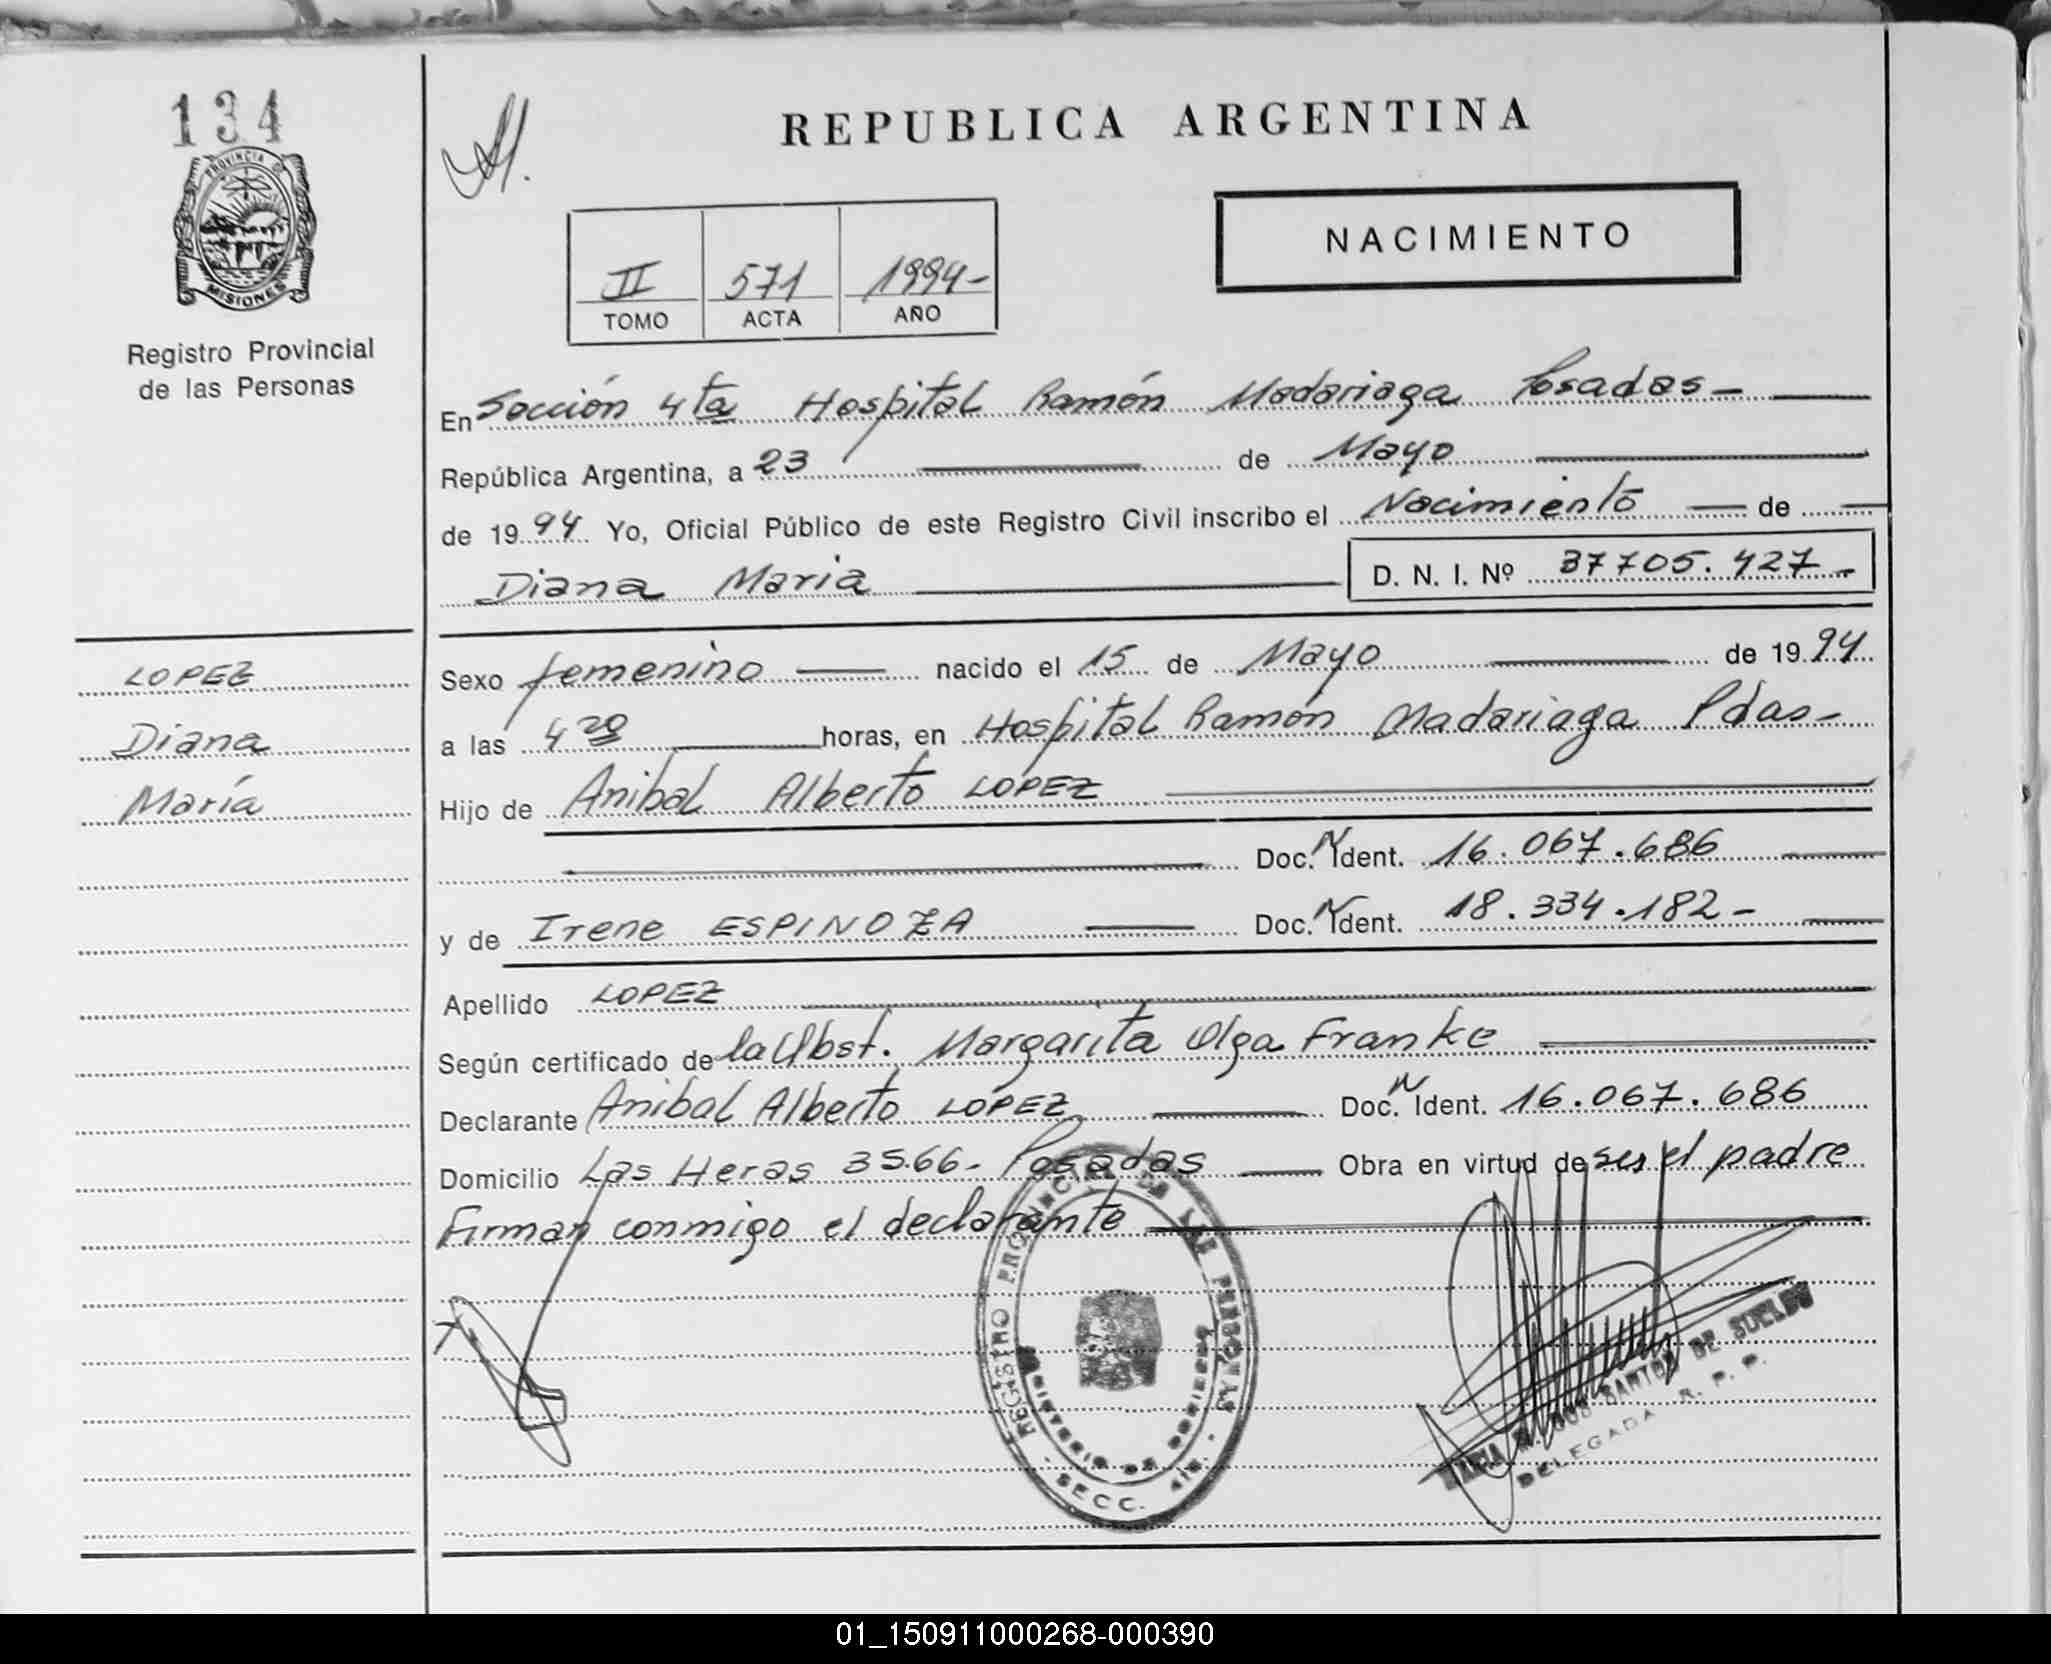 134
PROVINCIA DE
MISIONES
Registro Provincial
de las Personas
REPUBLICA ARGENTINA
NACIMIENTO
II 571 1994-
TOMO ACTA AÑO
En Sección 4ta Hospital Ramón Madariaga Posadas-
República Argentina, a 23 de Mayo
de 1994 Yo, Oficial Público de este Registro Civil inscribo el Nacimiento de
Diana Maria D. N. I. Nº 37705.427-
LOPEZ
Diana
María
Sexo femenino nacido el 15 de Mayo de 1994
a las 4 20 horas, en Hospital Ramón Madariaga Pdas-
Hijo de Anibal Alberto LOPEZ
Doc. N Ident. 16.067.686
y de Irene ESPINOZA Doc. N Ident. 18.334.182-
Apellido LOPEZ
Según certificado de la Obst. Margarita Olga Franke
Declarante Anibal Alberto LOPEZ Doc. N Ident. 16.067.686
Domicilio Las Heras 3566- Posadas Obra en virtud de ser el padre
Firman conmigo el declarante
REGISTRO PROVINCIAL DE LAS PERSONAS
MINISTERIO DE GOBIERNO
SECC. 4ta.
DOS SANTOS DE
DELEGADA R. P. P.
01_150911000268-000390